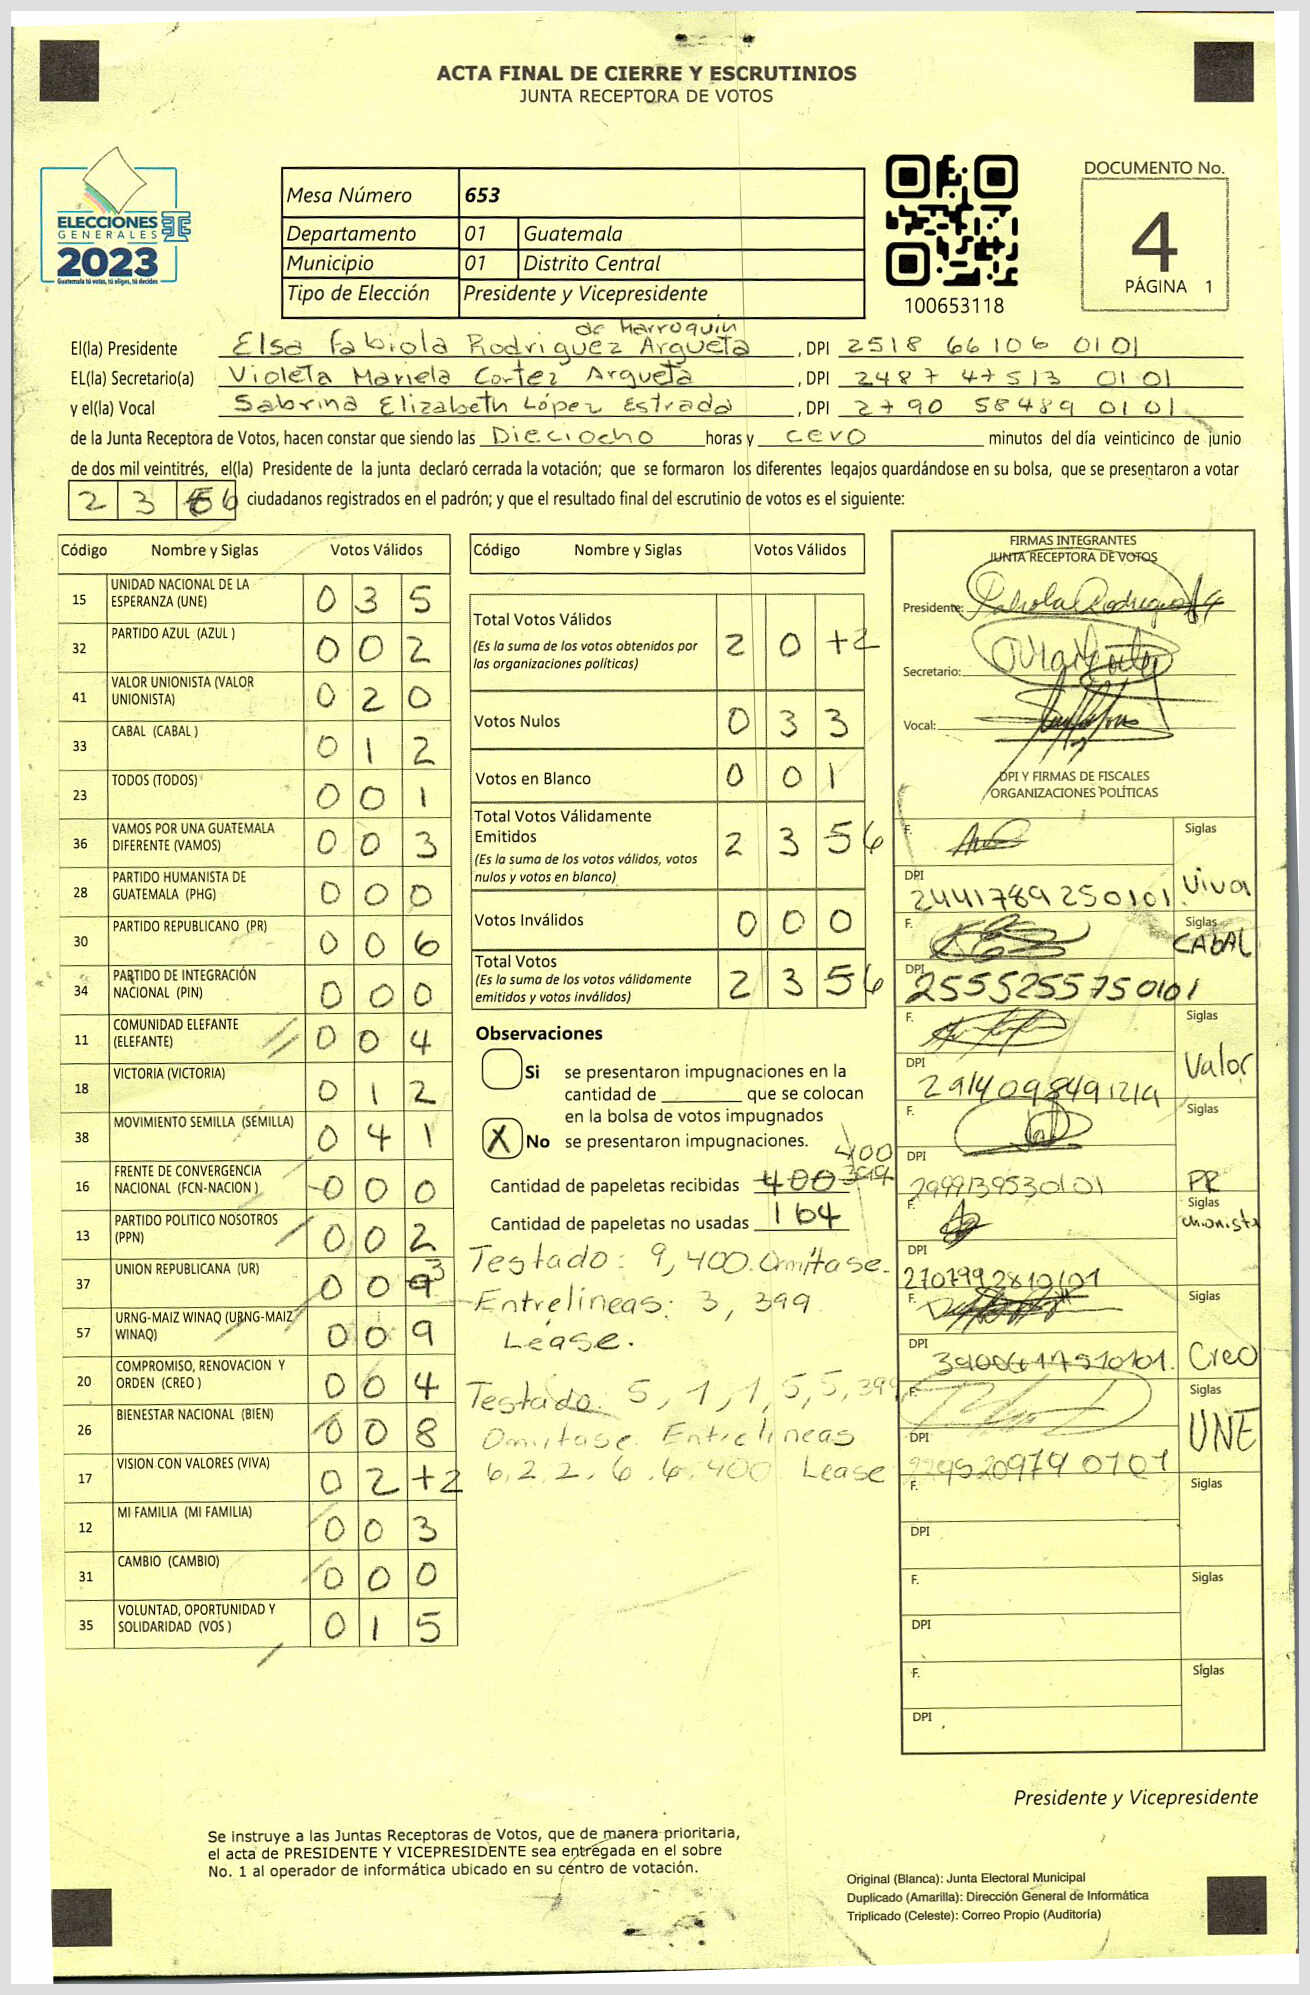 ACTA FINAL DE CIERRE Y ESCRUTINIOS
JUNTA RECEPTORA DE VOTOS
ELECCIONES
GENERALES
2023
Guatemala tú votas, tú eliges, tú decides
Mesa Número 653
Departamento 01 Guatemala
Municipio 01 Distrito Central
Tipo de Elección Presidente y Vicepresidente
100653118
DOCUMENTO No.
4
PÁGINA 1
de Marroquín
El(la) Presidente Elsa Fabiola Rodriguez Argueta, DPI 2518 66106 0101
EL(la) Secretario(a) Violeta Mariela Cortez Argueta, DPI 2487 47513 0101
y el(la) Vocal Sabrina Elizabeth López Estrada, DPI 2790 58489 0101
de la Junta Receptora de Votos, hacen constar que siendo las Dieciocho horas y cero minutos del día veinticinco de junio
de dos mil veintitrés, el(la) Presidente de la junta declaró cerrada la votación; que se formaron los diferentes legajos guardándose en su bolsa, que se presentaron a votar
2 3 6 ciudadanos registrados en el padrón; y que el resultado final del escrutinio de votos es el siguiente:
Código Nombre y Siglas Votos Válidos
15 UNIDAD NACIONAL DE LA ESPERANZA (UNE) 0 3 5
32 PARTIDO AZUL (AZUL ) 0 0 2
41 VALOR UNIONISTA (VALOR UNIONISTA) 0 2 0
33 CABAL (CABAL ) 0 1 2
23 TODOS (TODOS) 0 0 1
36 VAMOS POR UNA GUATEMALA DIFERENTE (VAMOS) 0 0 3
28 PARTIDO HUMANISTA DE GUATEMALA (PHG) 0 0 0
30 PARTIDO REPUBLICANO (PR) 0 0 6
34 PARTIDO DE INTEGRACIÓN NACIONAL (PIN) 0 0 0
11 COMUNIDAD ELEFANTE (ELEFANTE) 0 0 4
18 VICTORIA (VICTORIA) 0 1 2
38 MOVIMIENTO SEMILLA (SEMILLA) 0 4 1
16 FRENTE DE CONVERGENCIA NACIONAL (FCN-NACION ) 0 0 0
13 PARTIDO POLITICO NOSOTROS (PPN) 0 0 2
37 UNION REPUBLICANA (UR) 0 0 9 3
57 URNG-MAIZ WINAQ (URNG-MAIZ WINAQ) 0 0 9
20 COMPROMISO, RENOVACION Y ORDEN (CREO ) 0 0 4
26 BIENESTAR NACIONAL (BIEN) 0 0 8
17 VISION CON VALORES (VIVA) 0 2 1 2
12 MI FAMILIA (MI FAMILIA) 0 0 3
31 CAMBIO (CAMBIO) 0 0 0
35 VOLUNTAD, OPORTUNIDAD Y SOLIDARIDAD (VOS ) 0 1 5
Código Nombre y Siglas Votos Válidos
Total Votos Válidos 2 0 1 2
(Es la suma de los votos obtenidos por
las organizaciones políticas)
Votos Nulos 0 3 3
Votos en Blanco 0 0 1
Total Votos Válidamente
Emitidos 2 3 5 6
(Es la suma de los votos válidos, votos
nulos y votos en blanco)
Votos Inválidos 0 0 0
Total Votos 2 3 5 6
(Es la suma de los votos válidamente
emitidos y votos inválidos)
Observaciones
Si se presentaron impugnaciones en la
cantidad de ________ que se colocan
en la bolsa de votos impugnados
X No se presentaron impugnaciones.
400
Cantidad de papeletas recibidas 400 399
Cantidad de papeletas no usadas 164
Testado: 9, 400. Omítase.
Entrelineas: 3, 399
Léase.
Testado. 5, 1, 1, 5, 5, 399
Omitase. Entrelineas
6, 2, 2, 6, 6, 400 Lease
FIRMAS INTEGRANTES
JUNTA RECEPTORA DE VOTOS
Presidente:
Secretario:
Vocal:
DPI Y FIRMAS DE FISCALES
ORGANIZACIONES POLÍTICAS
F. Siglas
DPI 2441789250101 Viva
F. Siglas
DPI 2555255750101 CABAL
F. Siglas
DPI 2914098491219 Valor
F. Siglas
DPI 2999139530101 PR
F. Siglas
DPI 2707992810101 Unionista
F. Siglas
DPI 3900617510101. Creo
F. Siglas
DPI 0101 UNE
F. Siglas
DPI
F. Siglas
DPI
F. Siglas
DPI
Presidente y Vicepresidente
Se instruye a las Juntas Receptoras de Votos, que de manera prioritaria,
el acta de PRESIDENTE Y VICEPRESIDENTE sea entregada en el sobre
No. 1 al operador de informática ubicado en su centro de votación.
Original (Blanca): Junta Electoral Municipal
Duplicado (Amarilla): Dirección General de Informática
Triplicado (Celeste): Correo Propio (Auditoría)